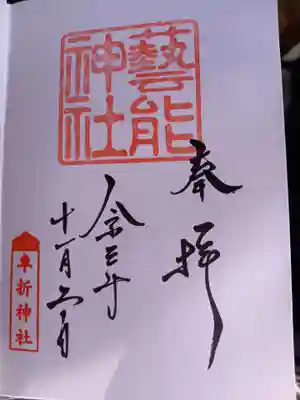 奉拝
藝能
神社
令和三年
十一月六日
車折神社